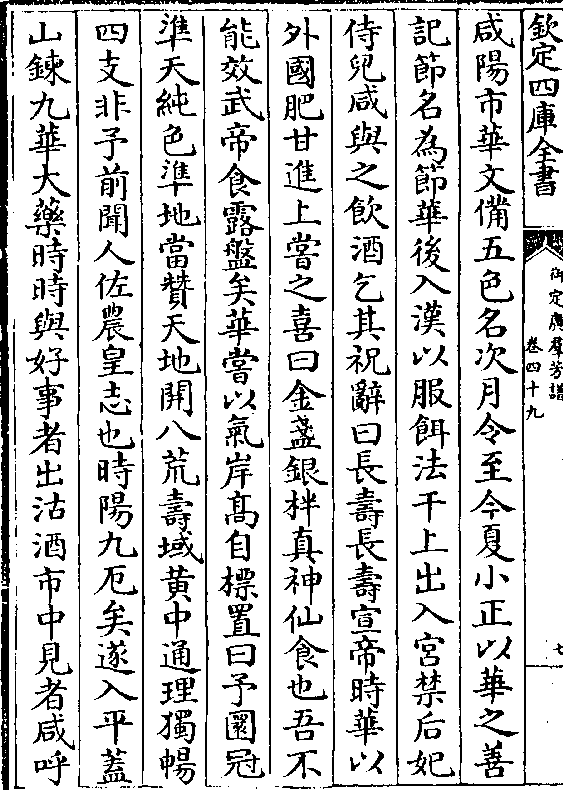 欽定四庫全書
御定廣羣芳譜
卷四十九
七
咸陽市華文備五色名次月令至今夏小正以華之善
記節名為節華後入漢以服餌法干上出入宮禁后妃
侍兒咸與之飲酒乞其祝辭曰長壽長壽宣帝時華以
外國肥甘進上嘗之喜曰金盞銀柈真神仙食也吾不
能效武帝食露盤矣華嘗以氣岸髙自標置曰予圜冠
準天純色準地當贊天地開八荒壽域黄中通理獨暢
四支非予前聞人佐農皇志也時陽九厄矣遂入平蓋
山鍊九華大藥時時與好事者出沽酒市中見者咸呼